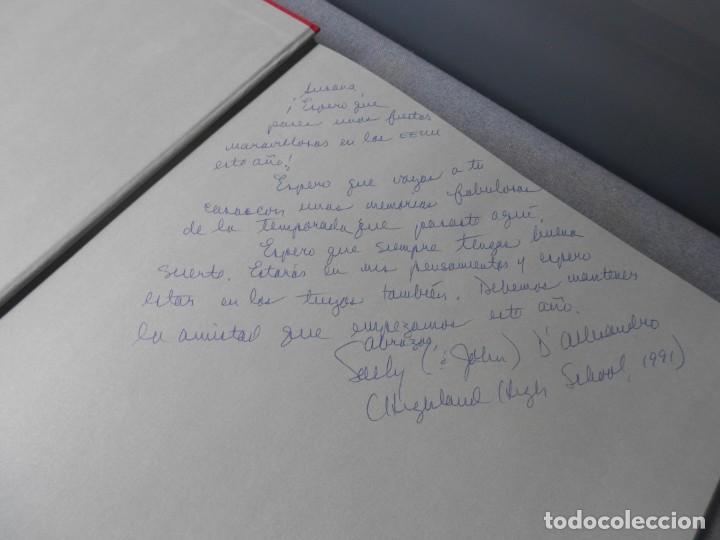 Susana,
¡Espero que
pases unas fiestas
maravillosas en los EEUU
este año!
Espero que vayas a tu
casa con unas memorias fabulosas
de la temporada que pasaste aquí.
Espero que siempre tengas buena
suerte. Estarás en mis pensamientos y espero
estar en los tuyos también. Debemos mantener
la amistad que empezamos este año.
Abrazos,
(& John) D'Alleandro
(Highland High School, 1991)
todocoleccion.net